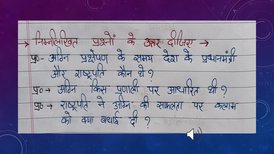 → निम्नलिखित प्रश्नों के उत्तर दीजिए →
प्र०→ अग्नि प्रक्षेपण के समय देश के प्रधानमंत्री
और राष्ट्रपति कौन थे ?
प्र०→ अग्नि किस प्रणाली पर आधारित थी ?
प्र०→ राष्ट्रपति ने अग्नि की सफलता पर कलाम
को क्या बधाई दी ?